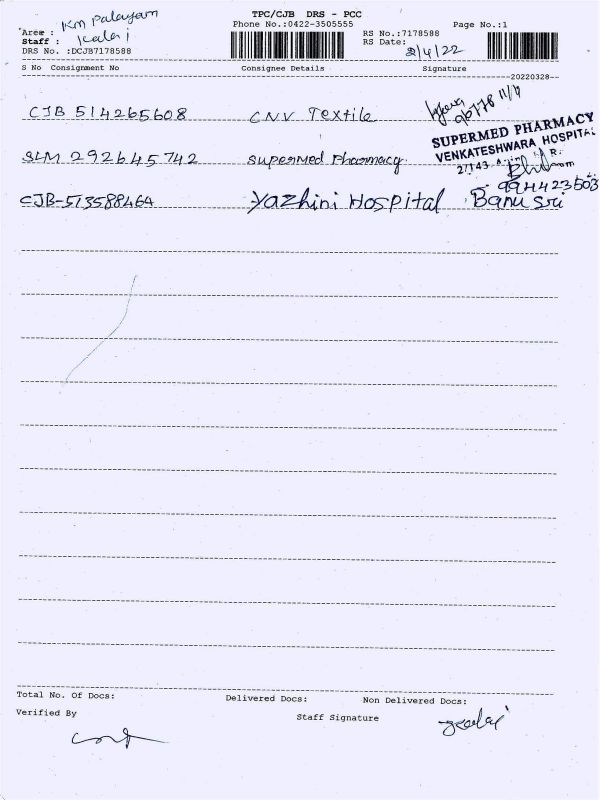 TPC/CJB DRS - PCC
Phone No.:0422-3505555
Page No.:1
Area : KM Palayam
Staff : Kalai
DRS No. :DCJB7178588
RS No.:7178588
RS Date: 2/4/22
S No Consignment No Consignee Details Signature
20220328
CJB 514265608 CNV Textile
SLM 292645742 Supermed Pharmacy
SUPERMED PHARMACY
VENKATESHWARA HOSPITAL
2/143
9944423503
CJB-513588464 Yazhini Hospital Banu Sri
Total No. Of Docs: Delivered Docs: Non Delivered Docs:
Verified By Staff Signature